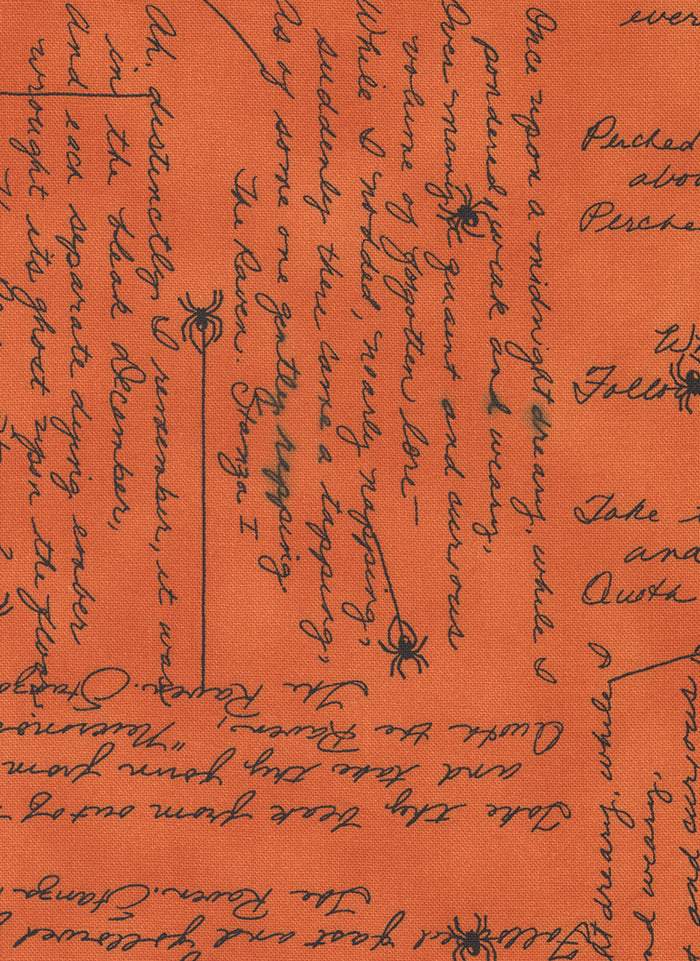 Once upon a midnight dreary, while I
pondered, weak and weary,
Over many a quaint and curious
volume of forgotten lore—
While I nodded, nearly napping,
suddenly there came a tapping,
As of some one gently rapping
The Raven. Stanza I
Ah, distinctly I remember, it was
in the bleak December,
and each separate dying ember
wrought its ghost upon the floor.
ever
Perched
abou
Perche
Follow
Take
and
Quoth
Followed fast and followed
The Raven. Stanza
Take thy beak from out of
and take thy form from
Quoth the Raven, "Nevermo
The Raven. Stanza
dreary, while I
weary,
and curious